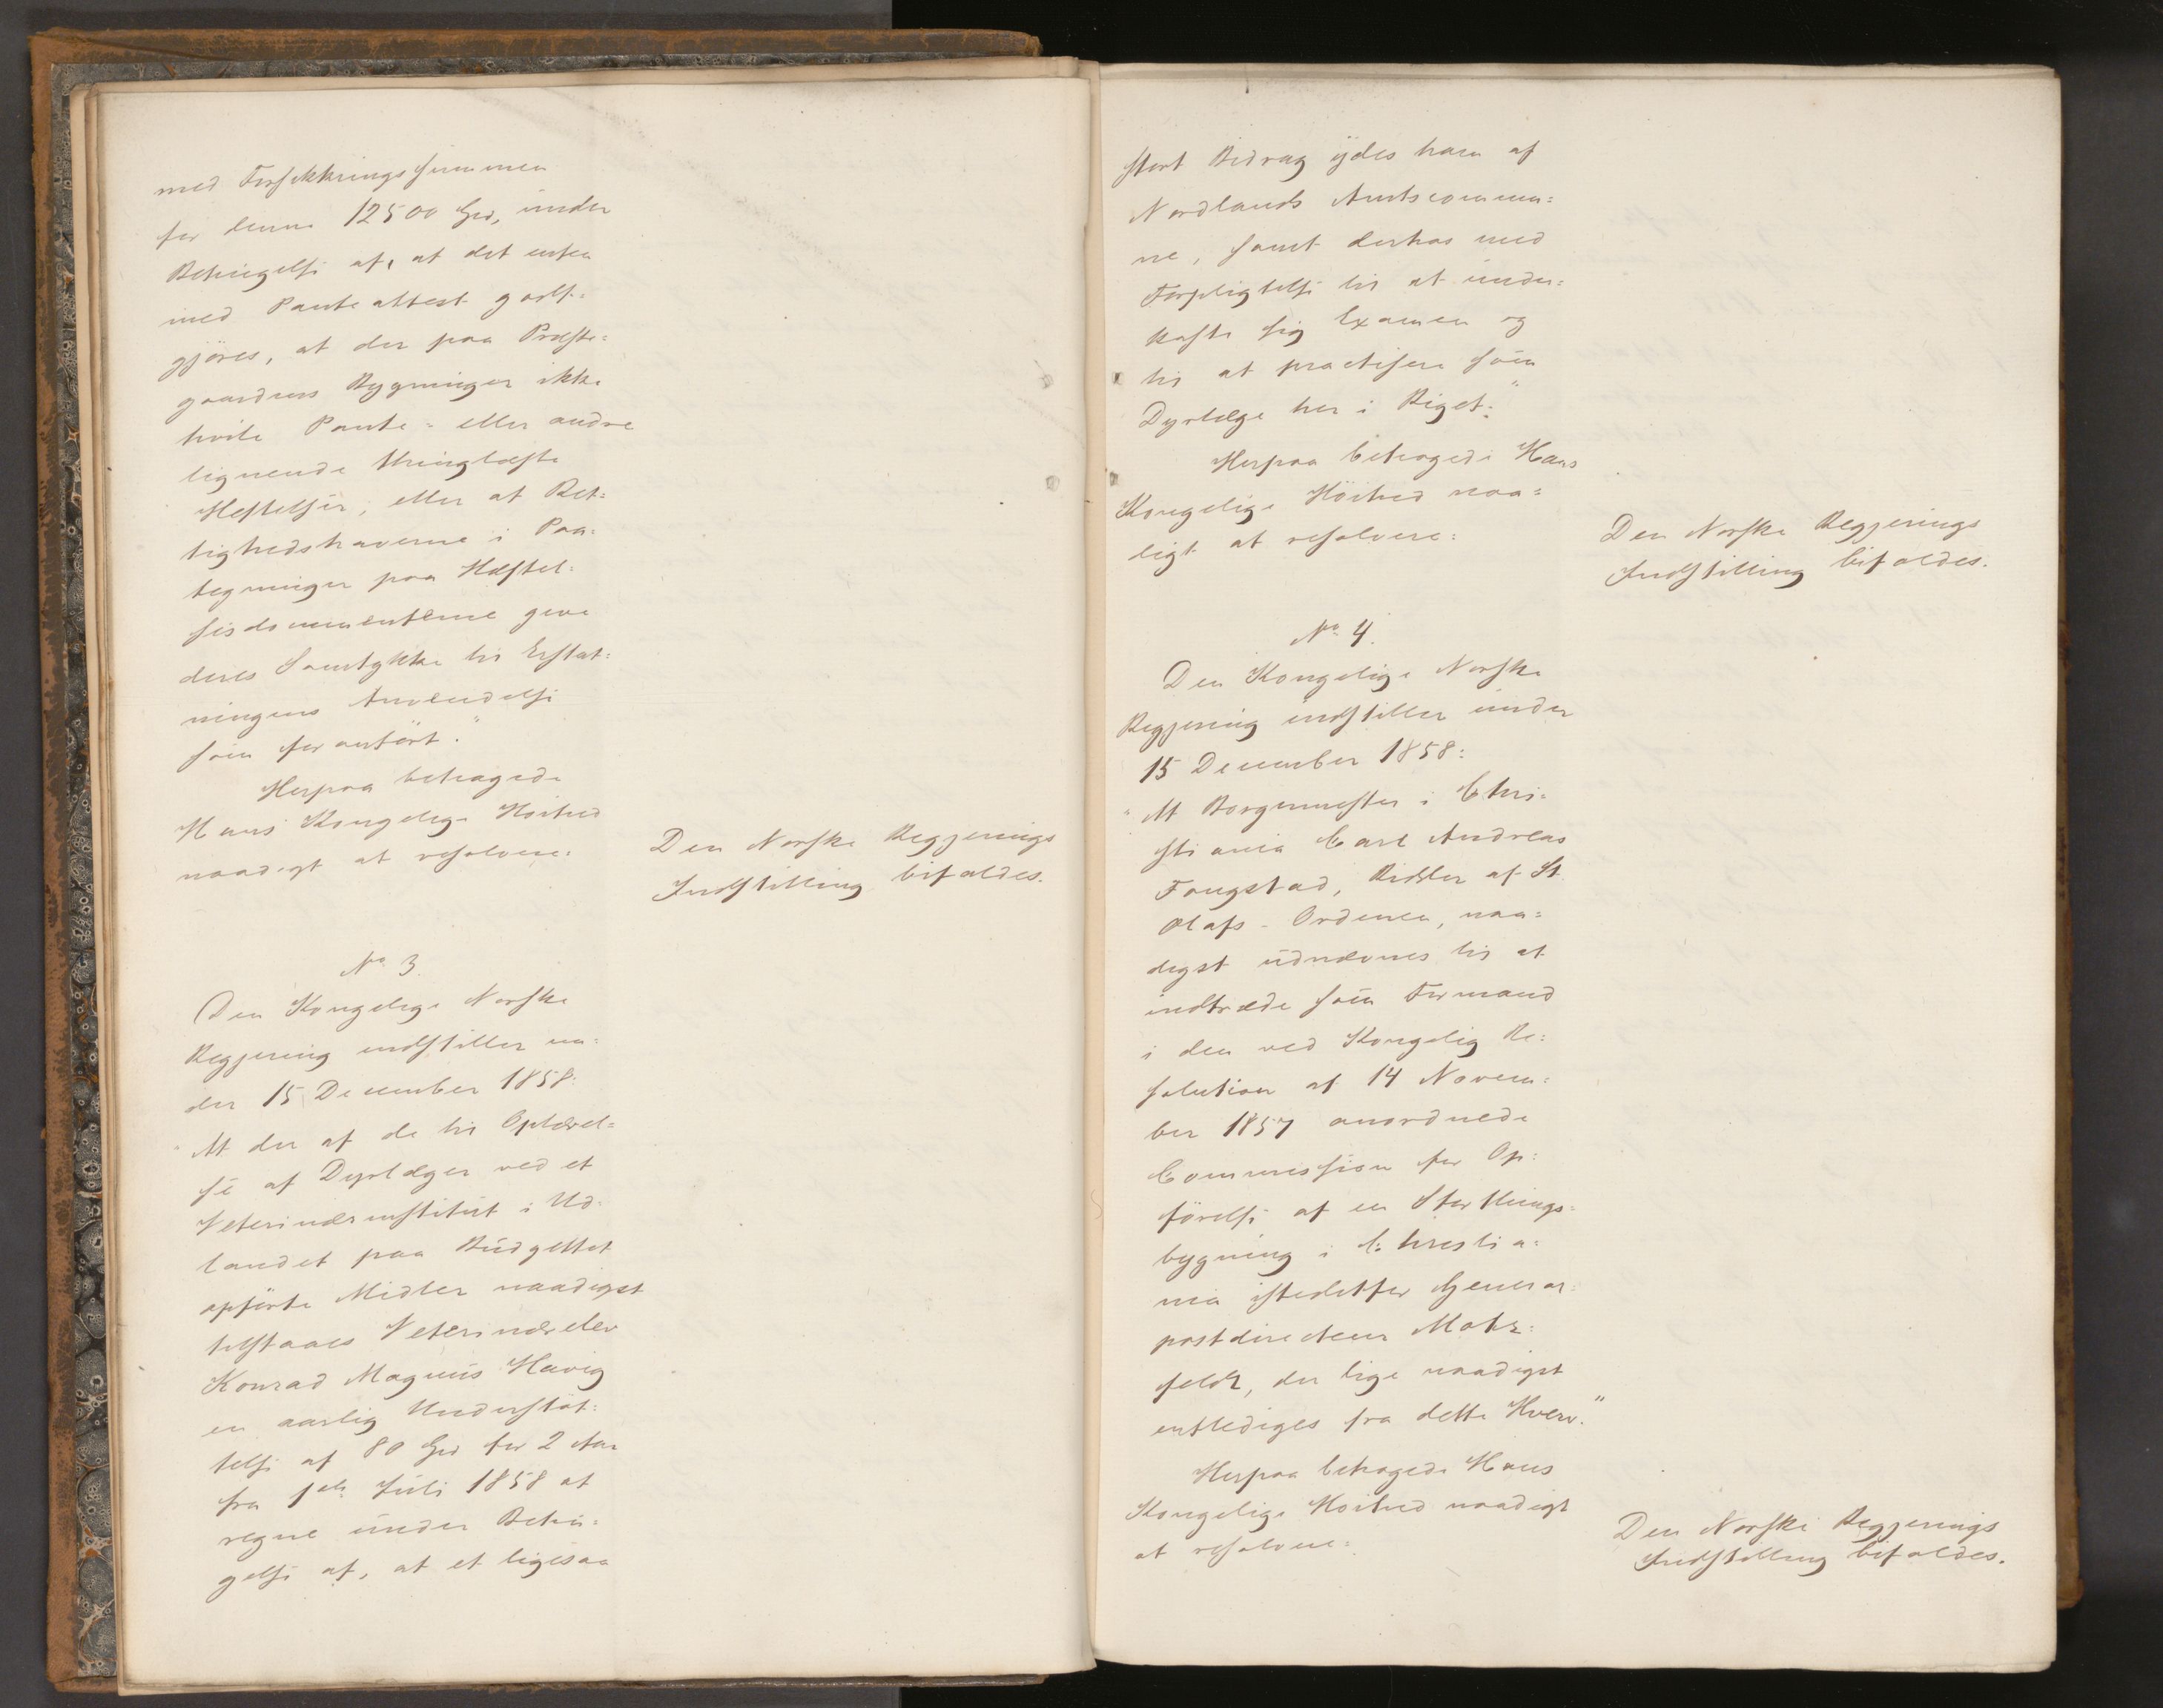 med Forsikkringssummen
for denne 1250 Spd, under
Betingelse af, at det enten
med Panteattest godt-
gjöres, at der paa Præste-
gaardens Bygninger ikke
hvile Pante- eller andre
lignende thinglæste
Heftelser, eller at Ret-
tighedshaverne i Paa-
tegninger paa Hæftel-
sesdocumenterne give
deres Samtykke til Erstat-
ningens Anvendelse
som foranfört."
Herpaa behagede
Hans Kongelige Höihed
naadigst at resolvere:
Den Norske Regjerings
Indstilling bifaldes.
No 3.
Den Kongelige Norske
Regjering indstiller un-
der 15 December 1858:
"At der af de til Oplærel-
se af Dyrlæger ved et
Veterinærinstitut i Ud-
landet paa Budgettet
opförte Midler naadigst
tilstaaes Veterinærelev
Konrad Magnus Havig
en aarlig Understöt-
telse af 80 Spd for 2 Aar
fra 1ste Juli 1858 at
regne under Betin-
gelse af, at et ligesaa
stort Bidrag ydes ham af
Nordlands Amtscommu-
ne, samt derhos med
Forpligtelse til at under-
kaste sig Examen og
til at practisere som
Dyrlæge her i Riget."
Herpaa behagede Hans
Kongelige Höihed naa-
digst at resolvere:
Den Norske Regjerings
Indstilling bifaldes.
No 4.
Den Kongelige Norske
Regjering indstiller under
15 December 1858:
"At Borgermester i Chri-
stiania Carl Andreas
Fougstad, Ridder af St.
Olafs-Ordenen, naa-
digst udnævnes til at
indtræde som Formand
i den ved Kongelig Re-
solution af 14 Novem-
ber 1857 anordnede
Commission for Op-
förelse af en Storthings-
bygning i Christia-
nia istedetfor General-
postdirecteur Motz-
feldt, der lige naadigst
entlediges fra dette Hverv."
Herpaa behagede Hans
Kongelige Höihed naadigst
at resolvere:
Den Norske Regjerings
Indstilling bifaldes.